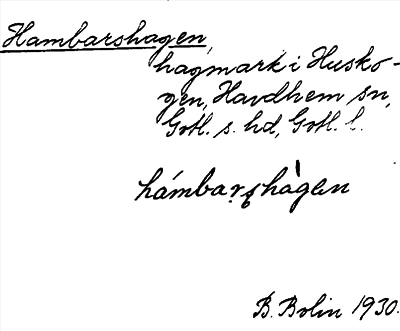 Hambarshagen,
hagmark i Husko-
gen, Havdhem sn,
Gotl. s. hd, Gotl. l.
hámbarshàgen
B. Bolin 1930.